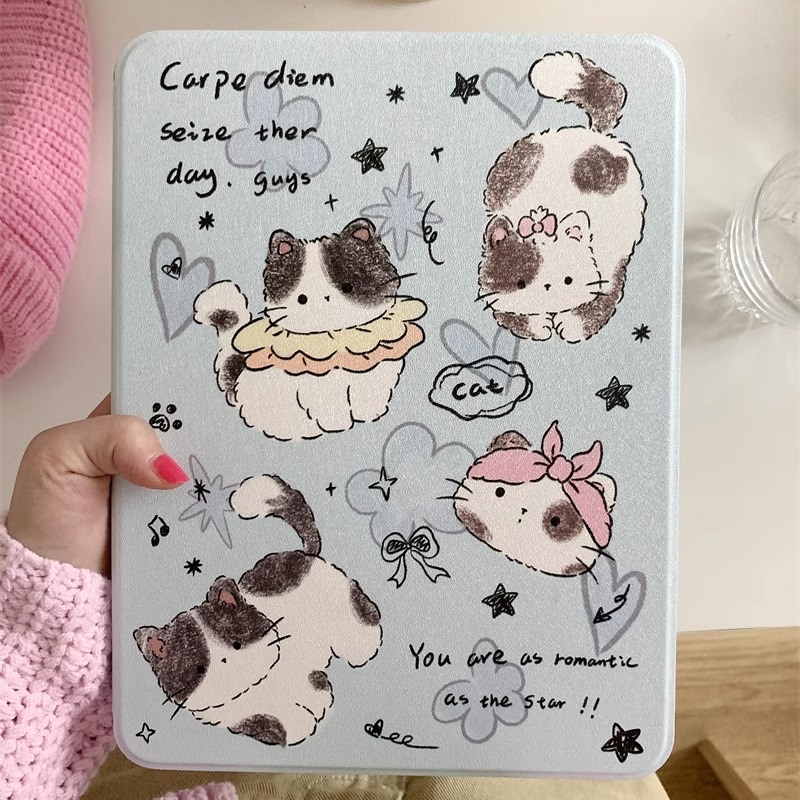 Carpe diem
seize ther
day. guys
cat
You are as romantic
as the star !!